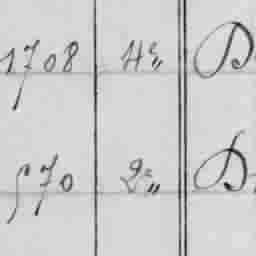 1708 4e„ D
570 2e„ D